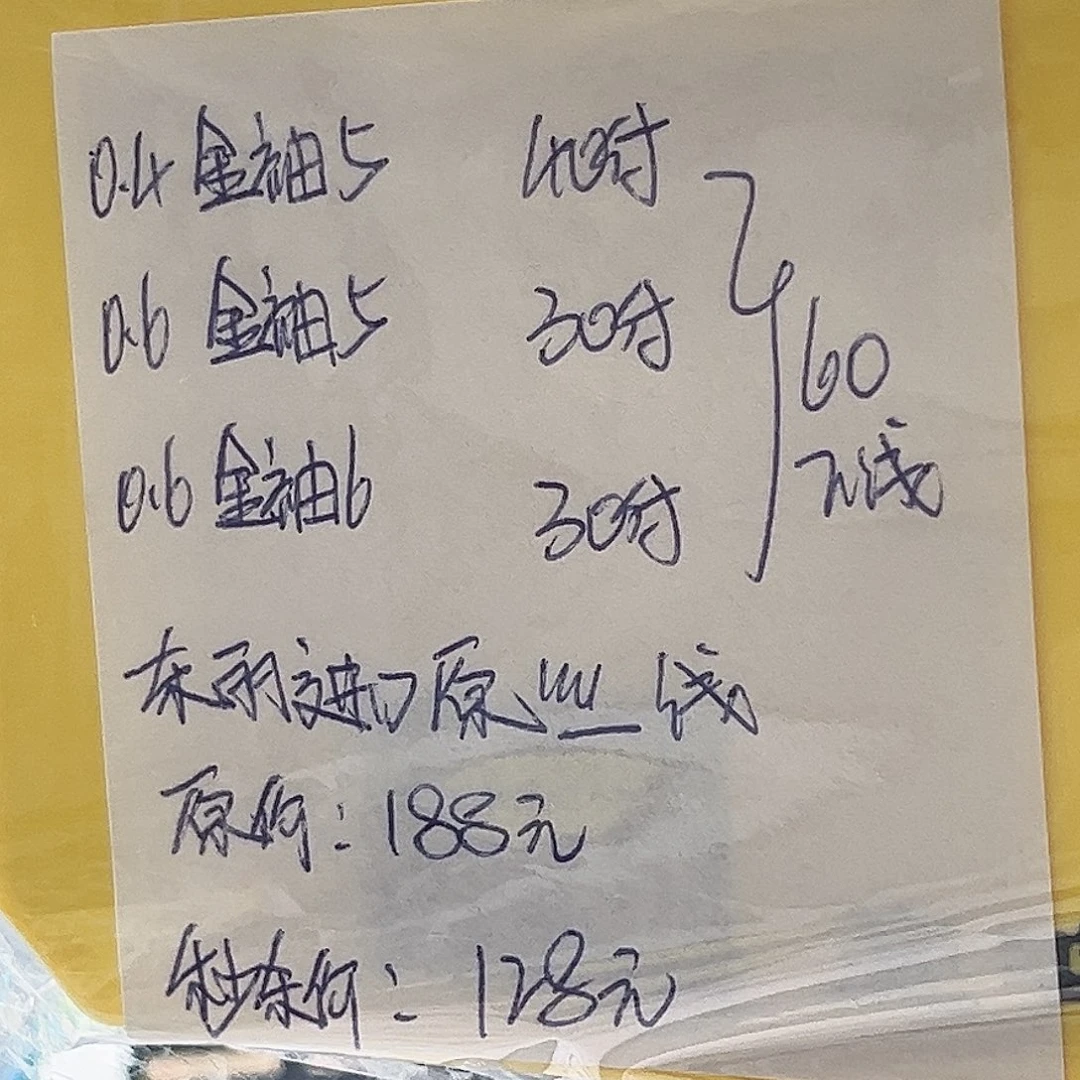 0.4 金袖5 40付
0.6 金袖5 30付
0.6 金袖6 30付
60
元线
东丽进口原丝线
原价:188元
秒杀价:128元